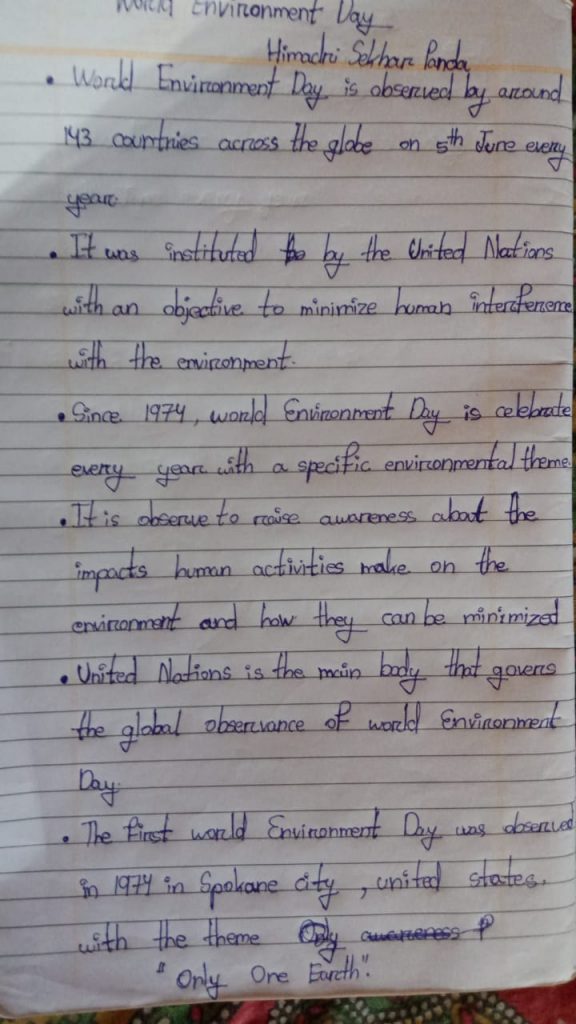 World Environment Day
Himadri Sekhar Panda
• World Environment Day is observed by around
143 countries across the globe on 5th June every
year.
• It was instituted to by the United Nations
with an objective to minimize human interference
with the environment.
• Since 1974, world Environment Day is celebrate
every year with a specific environmental theme.
• It is observe to raise awareness about the
impacts human activities make on the
environment and how they can be minimized
• United Nations is the main body that governs
the global observance of world Environment
Day.
• The first world Environment Day was observed
in 1974 in Spokane city, united states.
with the theme Only awareness P
"Only One Earth".